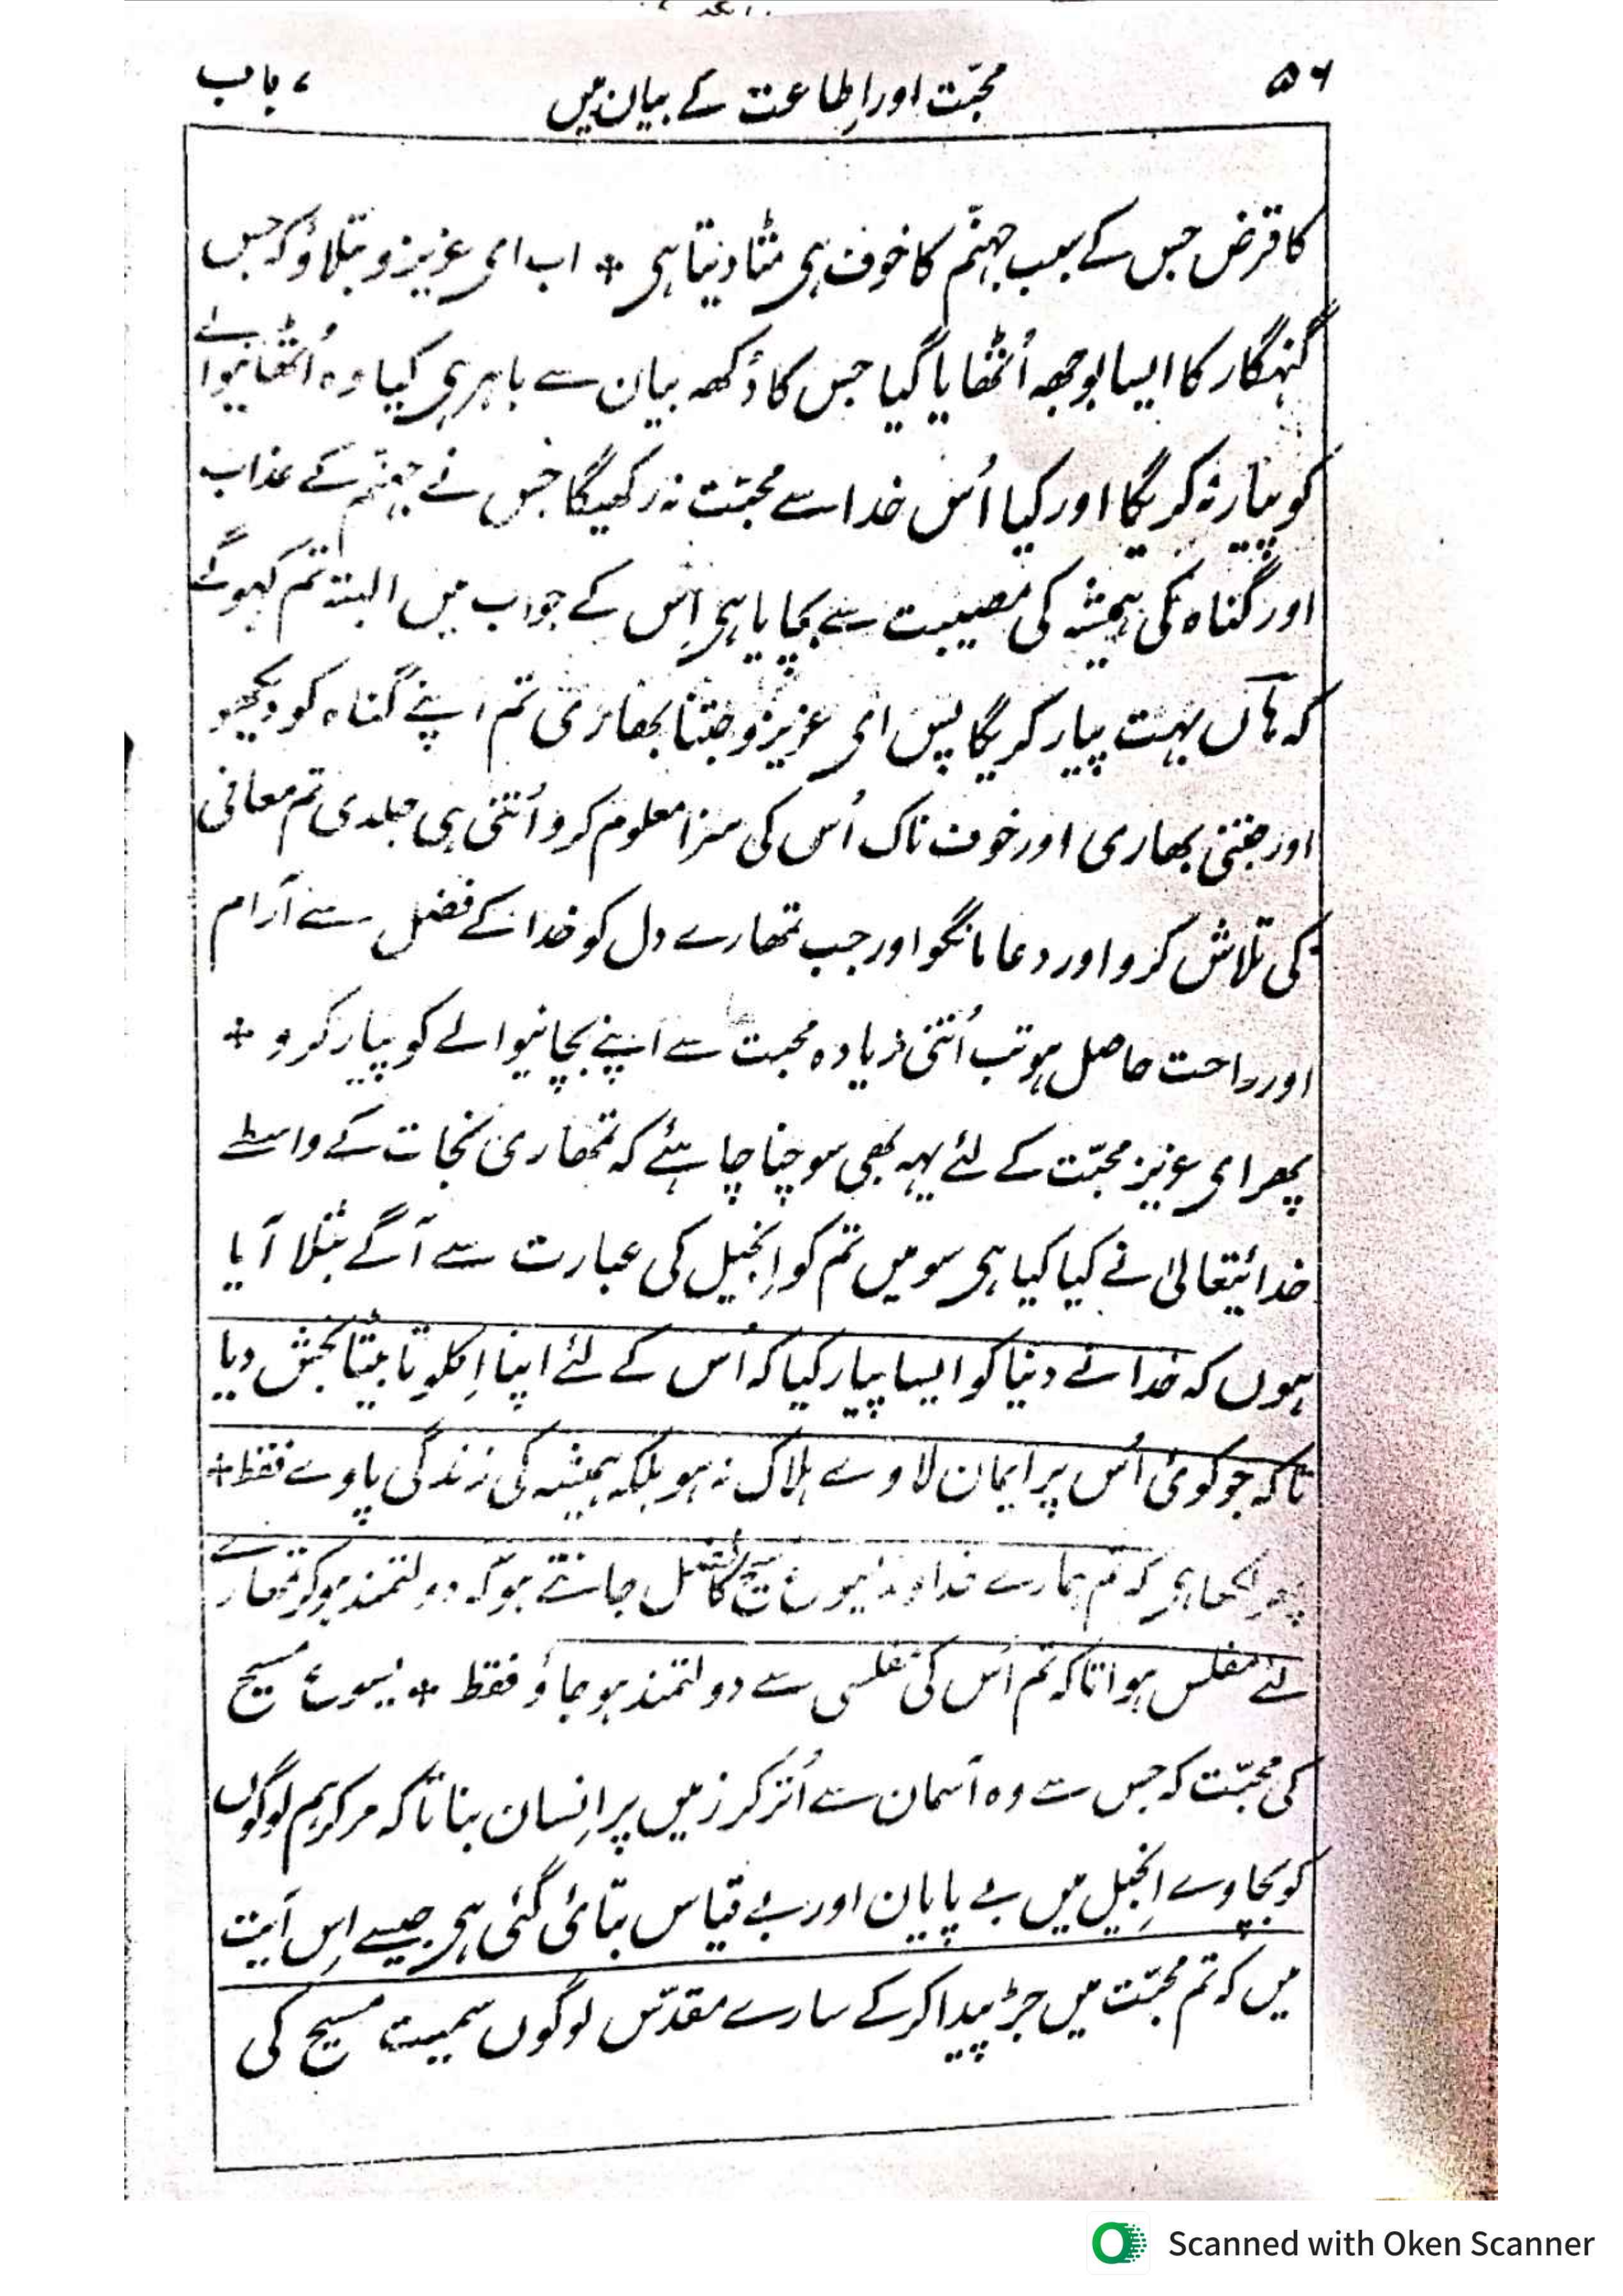 ۵۶ محبّت اور اِطاعت کے بیان میں ۷ باب
کا قرض جس کے سبب جہنّم کا خوف ہی مٹا دیتا ہی ٭ اب ای عزیزو بتلاؤ کہ جس
گنہگار کا ایسا بوجھہ اُٹھایا گیا جس کا دُکھہ بیان سے باہر ہی کیا وہ اُٹھانیوالے
کو پیار نہ کریگا اور کیا اُس خدا سے محبّت نہ رکھیگا جس نے جہنّم کے عذاب
اور گناہ کی ہمیشہ کی مصیبت سے بچایا ہی اِس کے جواب میں البتہ تم کہوگے
کہ ہاں بہت پیار کریگا پس ای عزیزو جتنا بھاری تم اپنے گناہ کو دیکھو
اور جتنی بھاری اور خوف ناک اُس کی سزا معلوم کرو اُتنی ہی جلدی تم معافی
کی تلاش کرو اور دعا مانگو اور جب تمھارے دل کو خدا کے فضل سے آرام
اور راحت حاصل ہو تب اُتنی زیادہ محبت سے اپنے بچانیوالے کو پیار کرو ٭
پھر ای عزیز محبّت کے لئے یہہ بھی سوچنا چاہئے کہ تمھاری نجات کے واسطے
خدائیتعالیٰ نے کیا کیا ہی سو میں تم کو اِنجیل کی عبارت سے آگے بتلا آیا
ہوں کہ خدا نے دنیا کو ایسا پیار کیا کہ اُس کے لئے اپنا اِکلوتا بیٹا بخش دیا
تاکہ جو کوئی اُس پر ایمان لاوے ہلاک نہ ہو بلکہ ہمیشہ کی زندگی پاوے فقط ٭
پھر لکھا ہی کہ تم ہمارے خداوند یسوع مسیح کا فضل جانتے ہو کہ دولتمند ہو کر تمھارے
لئے مفلس ہوا تاکہ تم اُس کی مفلسی سے دولتمند ہو جاؤ فقط ٭ یسوع مسیح
کی محبّت کہ جس سے وہ آسمان سے اُتر کر زمیں پر اِنسان بنا تاکہ مر کر ہم لوگوں
کو بچاوے اِنجیل میں بے پایان اور بے قیاس بتائی گئی ہی جیسے اِس آیت
میں کہ تم محبّت میں جڑ پیدا کر کے سارے مقدّس لوگوں سمیت مسیح کی
Scanned with Oken Scanner